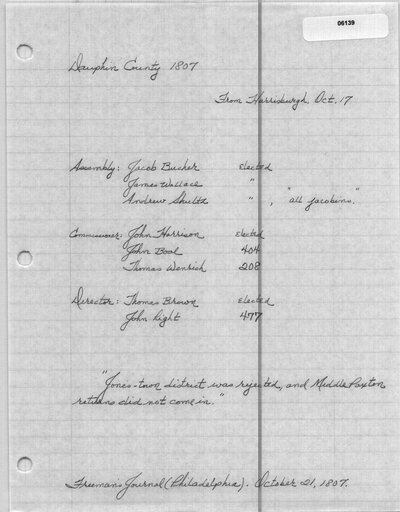 06139
Dauphin County 1807
From Harrisburgh, Oct. 17
Assembly: Jacob Bucher elected
James Wallace "
Andrew Shultz " , "all jacobins."
Commissioner: John Harrison elected
John Boal 404
Thomas Wenrich 208
Director: Thomas Brown elected
John Light 477
"Jones-town district was rejected, and Middle Paxton
returns did not come in."
Freeman's Journal (Philadelphia). October 21, 1807.